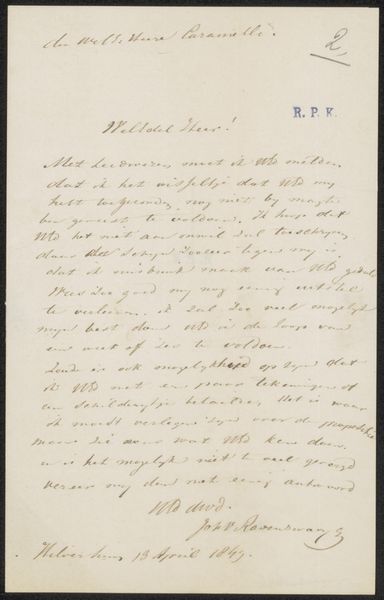 den WelEd. Heere Caramelli.
2,
R. P. K.
WelEdel Heer!
Met leedwezen moet ik UEd melden
dat ik het wisseltje dat UEd my
hebt toegezonden nog niet by magte
ben geweest te voldoen. Ik hoop dat
UEd het niet aan onwil zal toeschryven
daar de schyn zoozeer tegen my is
dat ik misbruik maak van UEd geduld
Wees zoo goed my nog eenig uitstel
te verleenen. ik zal zoo veel mogelyk
myn best doen UEd in de loop van
een week of zes te voldoen.
Zoud er ook mogelykheid op zyn dat
ik UEd met een paar tekeningen of
een schilderytje betaalde, Het is waar
ik moest verlegen zyn over de propositie
maar zie eens wat UEd kan doen.
en is het mogelyk niet te veel gevergd
vereer my dan met eenig antwoord
UEd dwd.
Jos V Ravenswaay
Hilversum 13 April 1849.